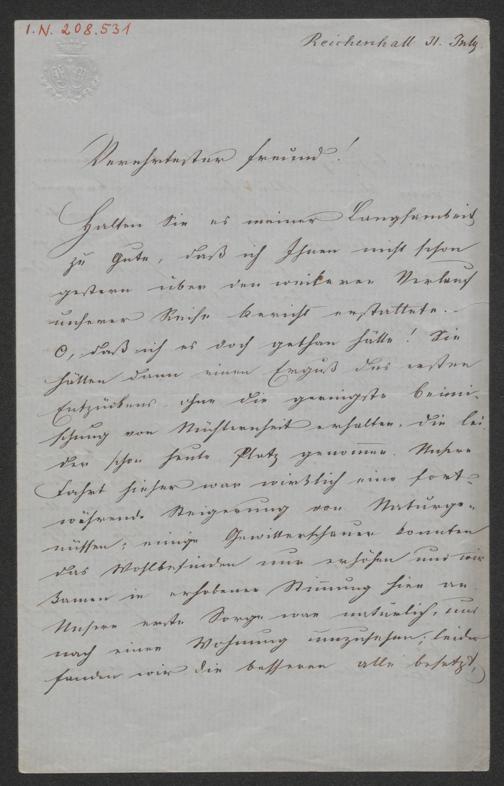 I.N. 208.531
Reichenhall 31. July
Verehrtester Freund!
Halten Sie es meiner Langsamkeit
zu Gute, daß ich Ihnen nicht schon
gestern über den weiteren Verlauf
unserer Reise Bericht erstattete. –
O, daß ich es doch gethan hätte! Sie
hätten dann einen Erguß des ersten
Entzückens ohne die geringste Beimi-
schung von Nüchternheit erhalten, die lei-
der schon heute Platz genommen. Unsere
Fahrt hieher war wirklich eine fort-
währende Steigerung von Naturge-
nüssen; einige Gewitterschauer konnten
das Wohlbefinden nur erhöhen und wir
kamen in erhobener Stimmung hier an
Unsere erste Sorge war natürlich, uns
nach einer Wohnung umzusehen; leider
fanden wir die besseren alle besetzt,